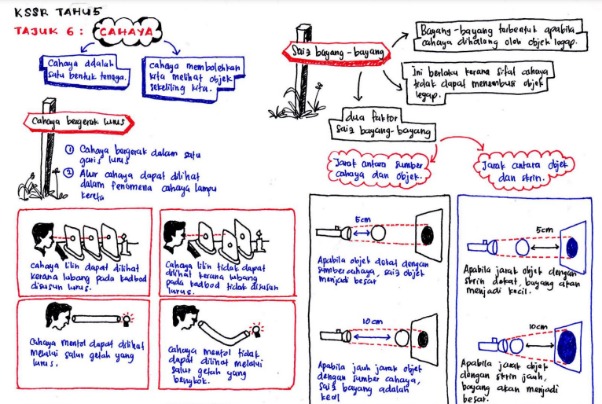 KSSR TAHUN 5
TAJUK 6 : CAHAYA
Cahaya adalah
satu bentuk tenaga.
cahaya membolehkan
kita melihat objek
sekeliling kita.
Cahaya bergerak lurus
① Cahaya bergerak dalam satu
garis lurus
② Alur cahaya dapat dilihat
dalam fenomena cahaya lampu
kereta
cahaya lilin dapat dilihat
kerana lubang pada kadbod
disusun lurus.
Cahaya lilin tidak dapat
dilihat kerana lubang
pada kadbod tidak disusun
lurus.
Cahaya mentol dapat dilihat
melalui salur getah yang
lurus.
cahaya mentol tidak
dapat dilihat melalui
salur getah yang
bengkok.
Saiz bayang-bayang
Bayang-bayang terbentuk apabila
cahaya dihalang oleh objek legap.
Ini berlaku kerana sifat cahaya
tidak dapat menembusi objek
legap.
dua faktor
saiz bayang-bayang
Jarak antara sumber
cahaya dan objek.
Jarak antara objek
dan skrin.
5cm
Apabila objek dekat dengan
sumber cahaya, saiz objek
menjadi besar
10cm
Apabila jauh jarak objek
dengan sumber cahaya,
saiz bayang adalah
kecil
5cm
Apabila jarak objek dengan
skrin dekat, bayang akan
menjadi kecil.
10cm
Apabila jarak objek
dengan skrin jauh,
bayang akan menjadi
besar.